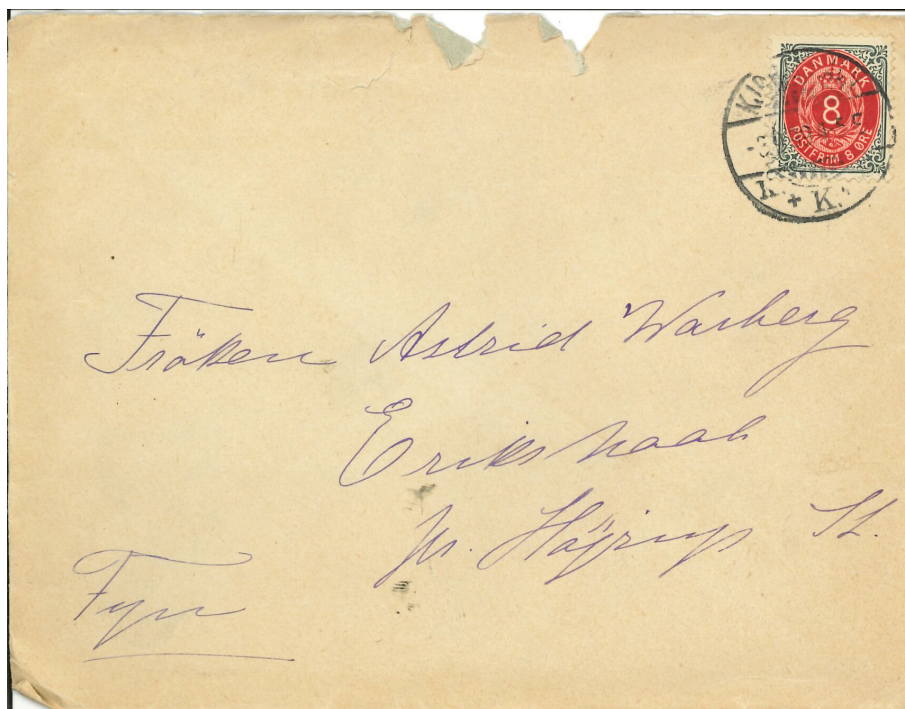 DANMARK
8
POSTFRIM. 8 ØRE
K.
Fröken Astrid Warberg
Erikshaab
pr. Höjrup St.
Fyn